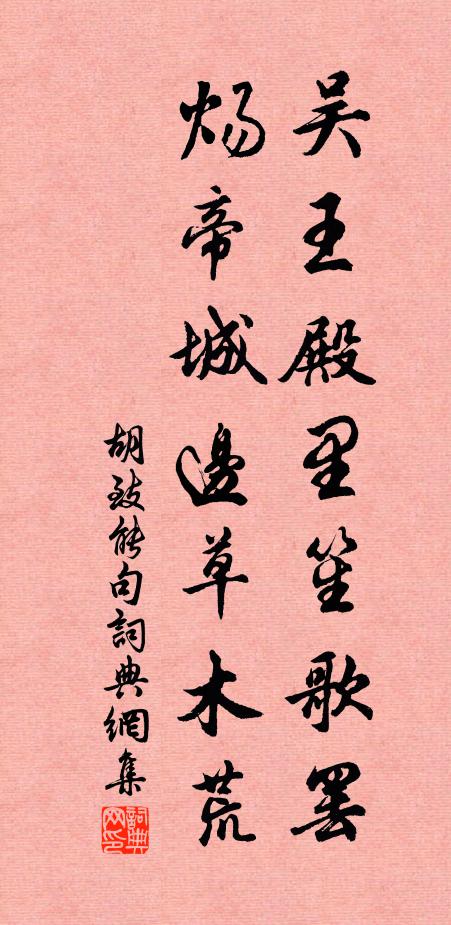 吴王殿里笙歌罢
炀帝城邊草木荒
胡致能句詞典網集
詞典网印